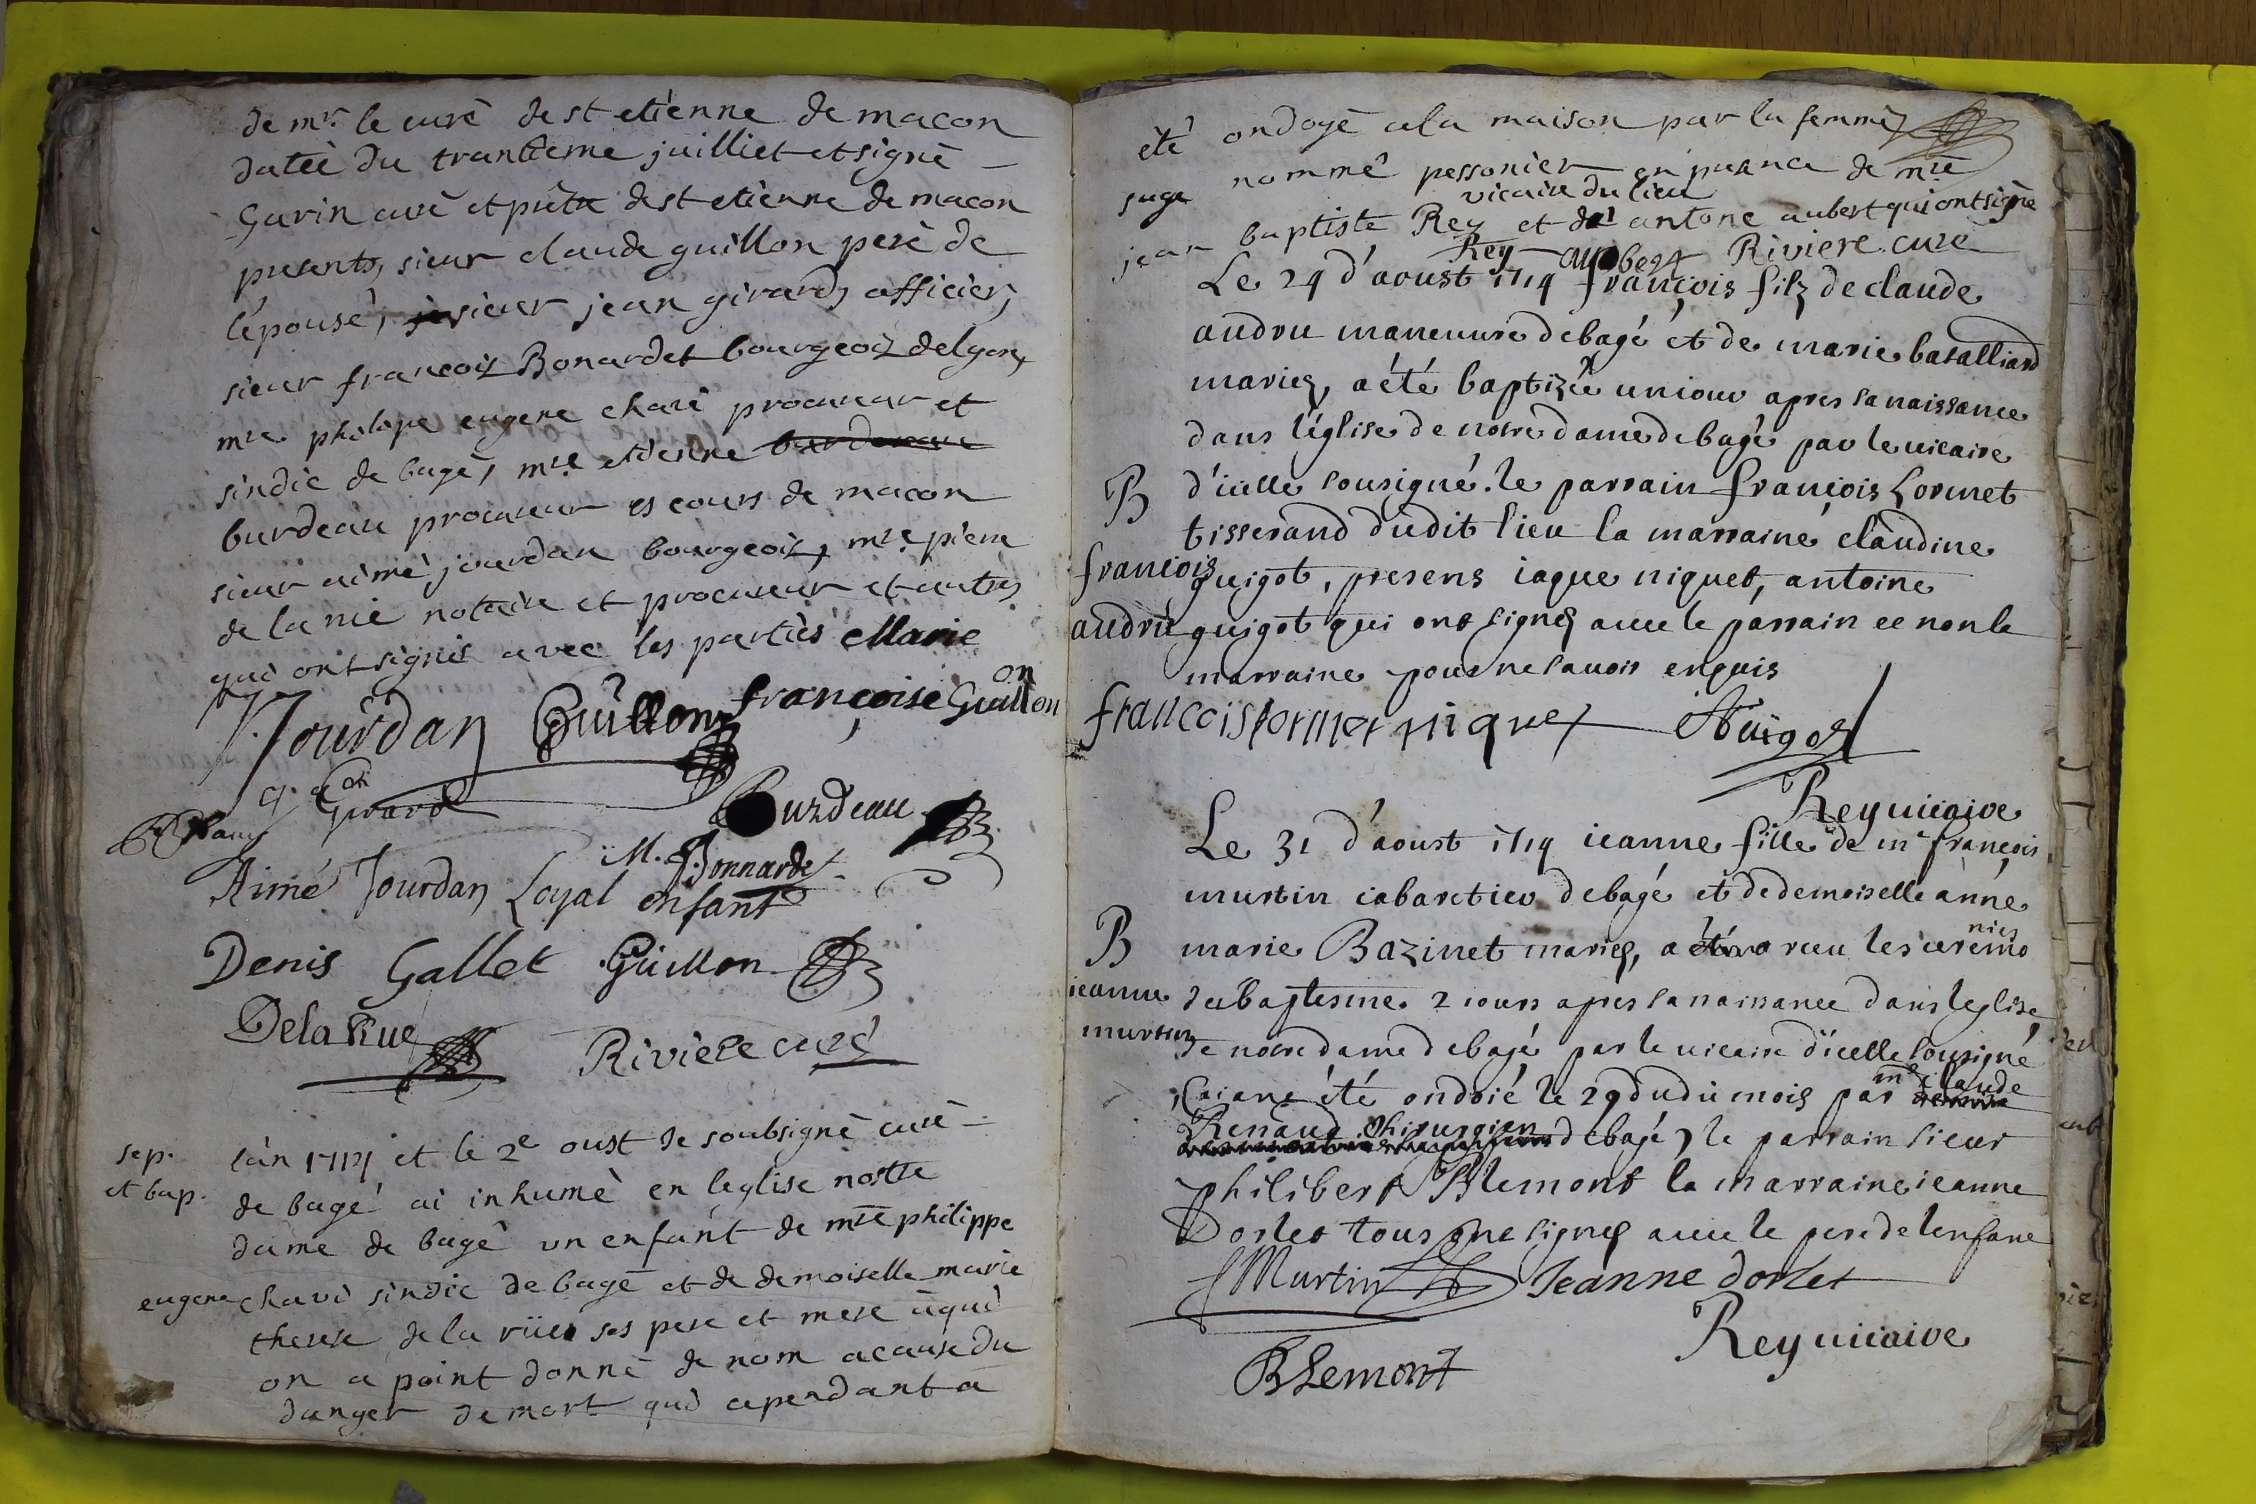 de mre le curé de st etienne de macon
datée du trantieme juilliet et signé
Garin curé et prêtre de st etienne de macon
presents, sieur claude guillon peré de
lépousé, sieur jean girard officier,
sieur francois Bonardet bourgeois de lyon,
mre philipe eugene chavi procureur et
sindic de bagé, mre etienne burdeau
burdeau procureur es cours de macon
sieur aimé jourdan bourgeois, mre pierre
de la rüe notaire et procureur et autres
qui ont signés avec les partiés Marie
françoise Guillon
Jourdan Guillon
Girard
Burdeau
M. Bonnardet
Aimé Jourdan Loyal enfant
Denis Gallet Guillon
Dela Rue
Riviere curé
sep. et bap.
lán 1714 et le 2e oust Je soubsigné curé
de bagé ai inhumé en leglise nostre
dame de bagé un enfant de mre philippe
eugene chavi sindic de bagé et de demoiselle marie
therese de la rüe ses pere et mere aqui
on a point donné de nom acause du
danger de mort qui cependant a
été ondoyé ala maison par la femme
sage nommé pessonier en presence de mre
vicaire du lieu
jean baptiste Rey et de antone aubert qui ont signé
Rey aubert Riviere curé
Le 24 d'aoust 1714 françois filz de claude
audru maneuure de bagé et de marie basalliard
mariez, a été baptizée un iour apres sa naissance
dans l'église de notre dame de bagé par le vicaire
B
d'icelle sousigné. le parrain françois Lormet
tisserand dudit lieu la marraine claudine
francois
guigot, presens iaque niquet, antoine
audru
guigot qui ont signez avec le parrain ee non la
marraine pour ne sauoir enquis
francois lormet niquet AGuigot
Rey uicaire
Le 31 d'aoust 1714 ieanne fille de mr françois
murtin cabaretier de bagé et de demoiselle anne
B
marie Bazinet mariez, a receu les ceremonies
ieanne
du baptesme 2 iours apres sa naissance dans leglise
murtin
de notre dame de bagé par le uicaire d'icelle sousigné
aiant été ondoié le 29 dudit mois par mr claude
Renaud chirurgien de bagé, le parrain sieur
philibert Blemont la marraine ieanne
Dorlet tous ont signez auec le pere de lenfant
Murtin Jeanne dorlet
Rey uicaire
BLemont